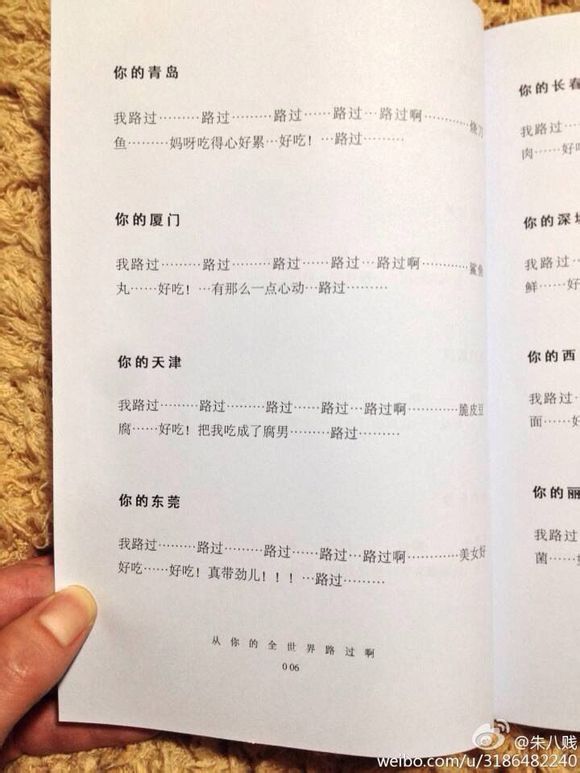 你的青岛
我路过………路过………路过……路过…路过啊………烧刀
鱼………妈呀吃得心好累…好吃！…路过………
你的厦门
我路过………路过………路过……路过…路过啊………鲨鱼
丸……好吃！…有那么一点心动…路过………
你的天津
我路过………路过………路过……路过…路过啊………脆皮豆
腐……好吃！把我吃成了腐男………路过………
你的东莞
我路过………路过………路过……路过…路过啊………美女好
好吃……好吃！真带劲儿！！！…路过………
从你的全世界路过啊
006
你的长春
我路过
肉……好吃
你的深圳
我路过
鲜……好
你的西
我路过
面……好
你的丽
我路过
菌……好
@朱八贱
weibo.com/u/3186482240